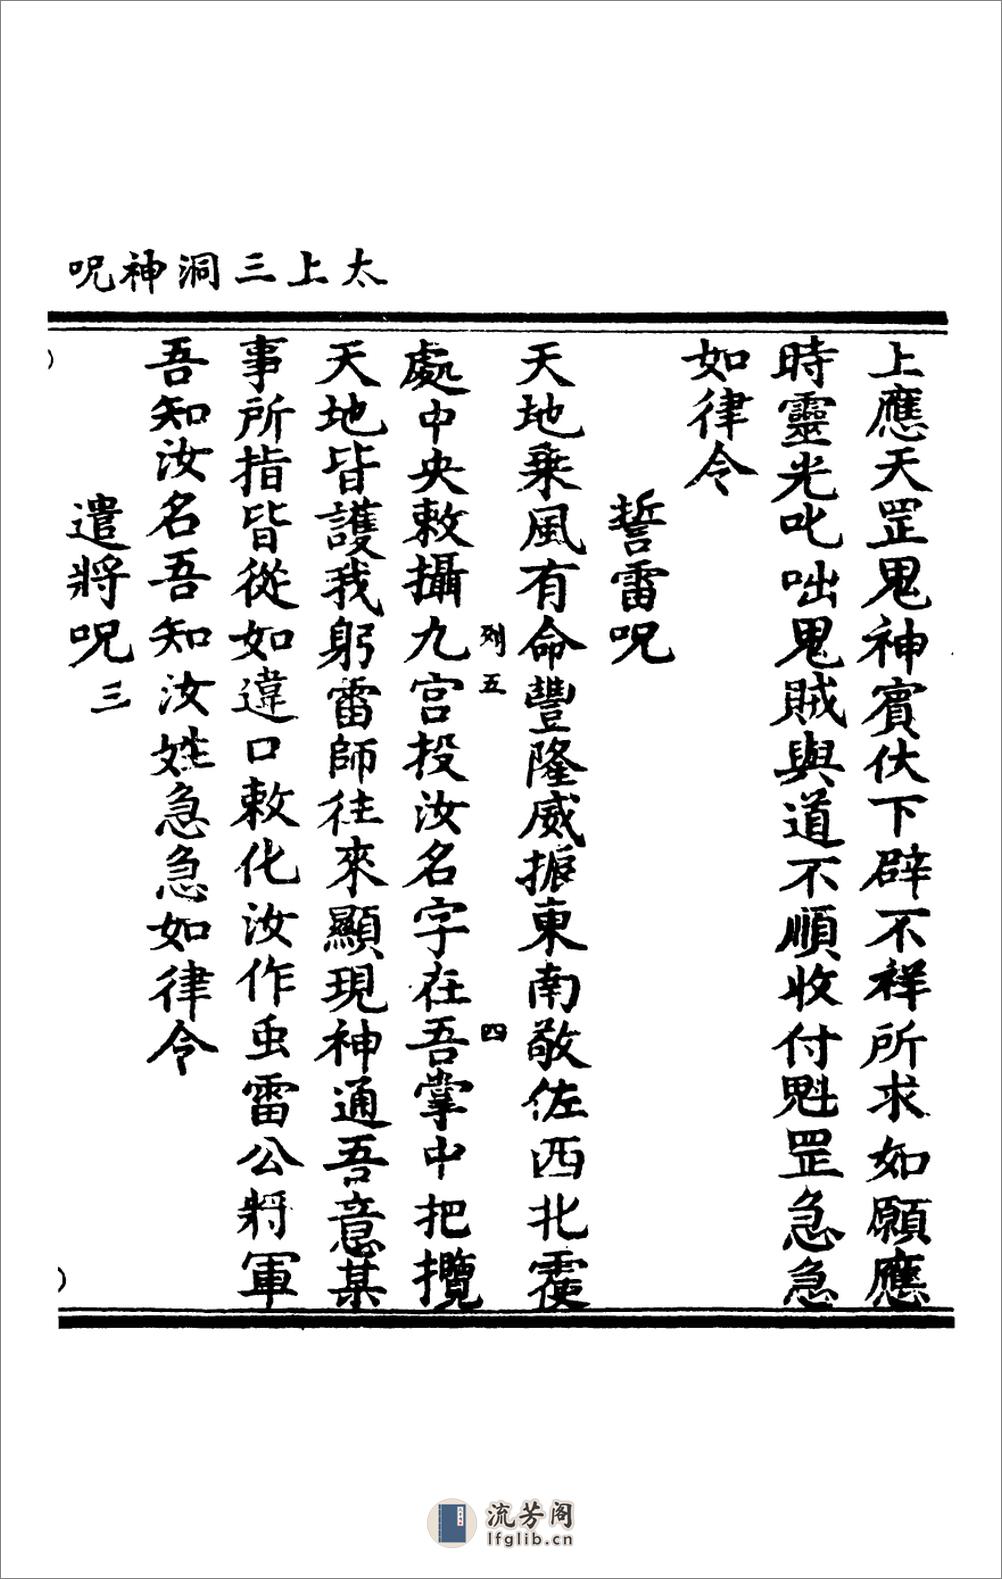 太上三洞神呪
上應天罡鬼神賓伏下辟不祥所求如願應
時靈光叱咄鬼賊與道不順收付魁罡急急
如律令
誓雷呪
天地乗風有命豐隆威振東南敬佐西北霞
列五
四
處中央敕攝九宫投汝名字在吾掌中把攬
天地皆護我躬雷師往來顯現神通吾意某
事所指皆從如違口敕化汝作虫雷公將軍
吾知汝名吾知汝姓急急如律令
遣將呪三
流芳阁
lfglib.cn